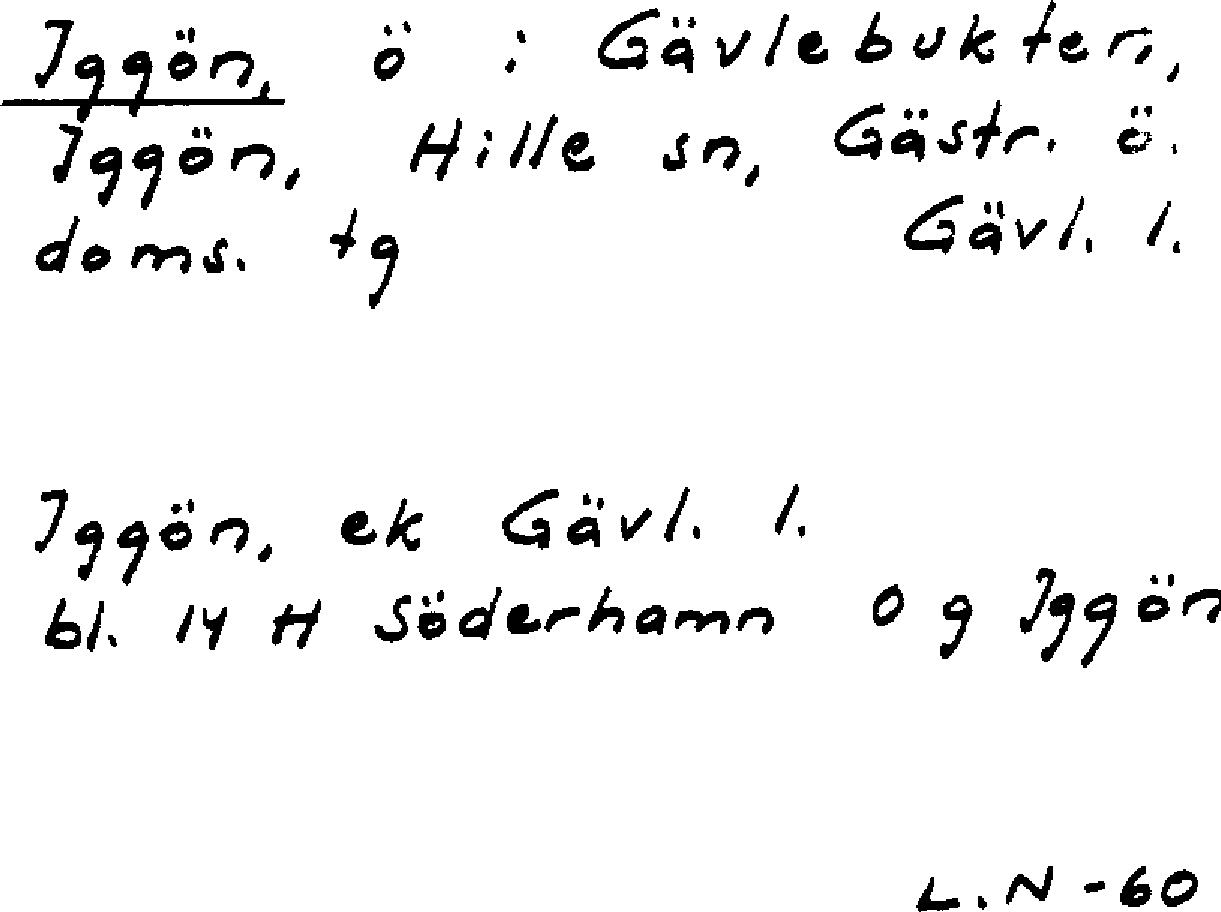 Iggön, ö i Gävlebukten,
Iggön, Hille sn, Gästr. ö.
doms. tg Gävl. l.
Iggön, ek Gävl. l.
bl. 14 H Söderhamn O g Iggön
L.N -60